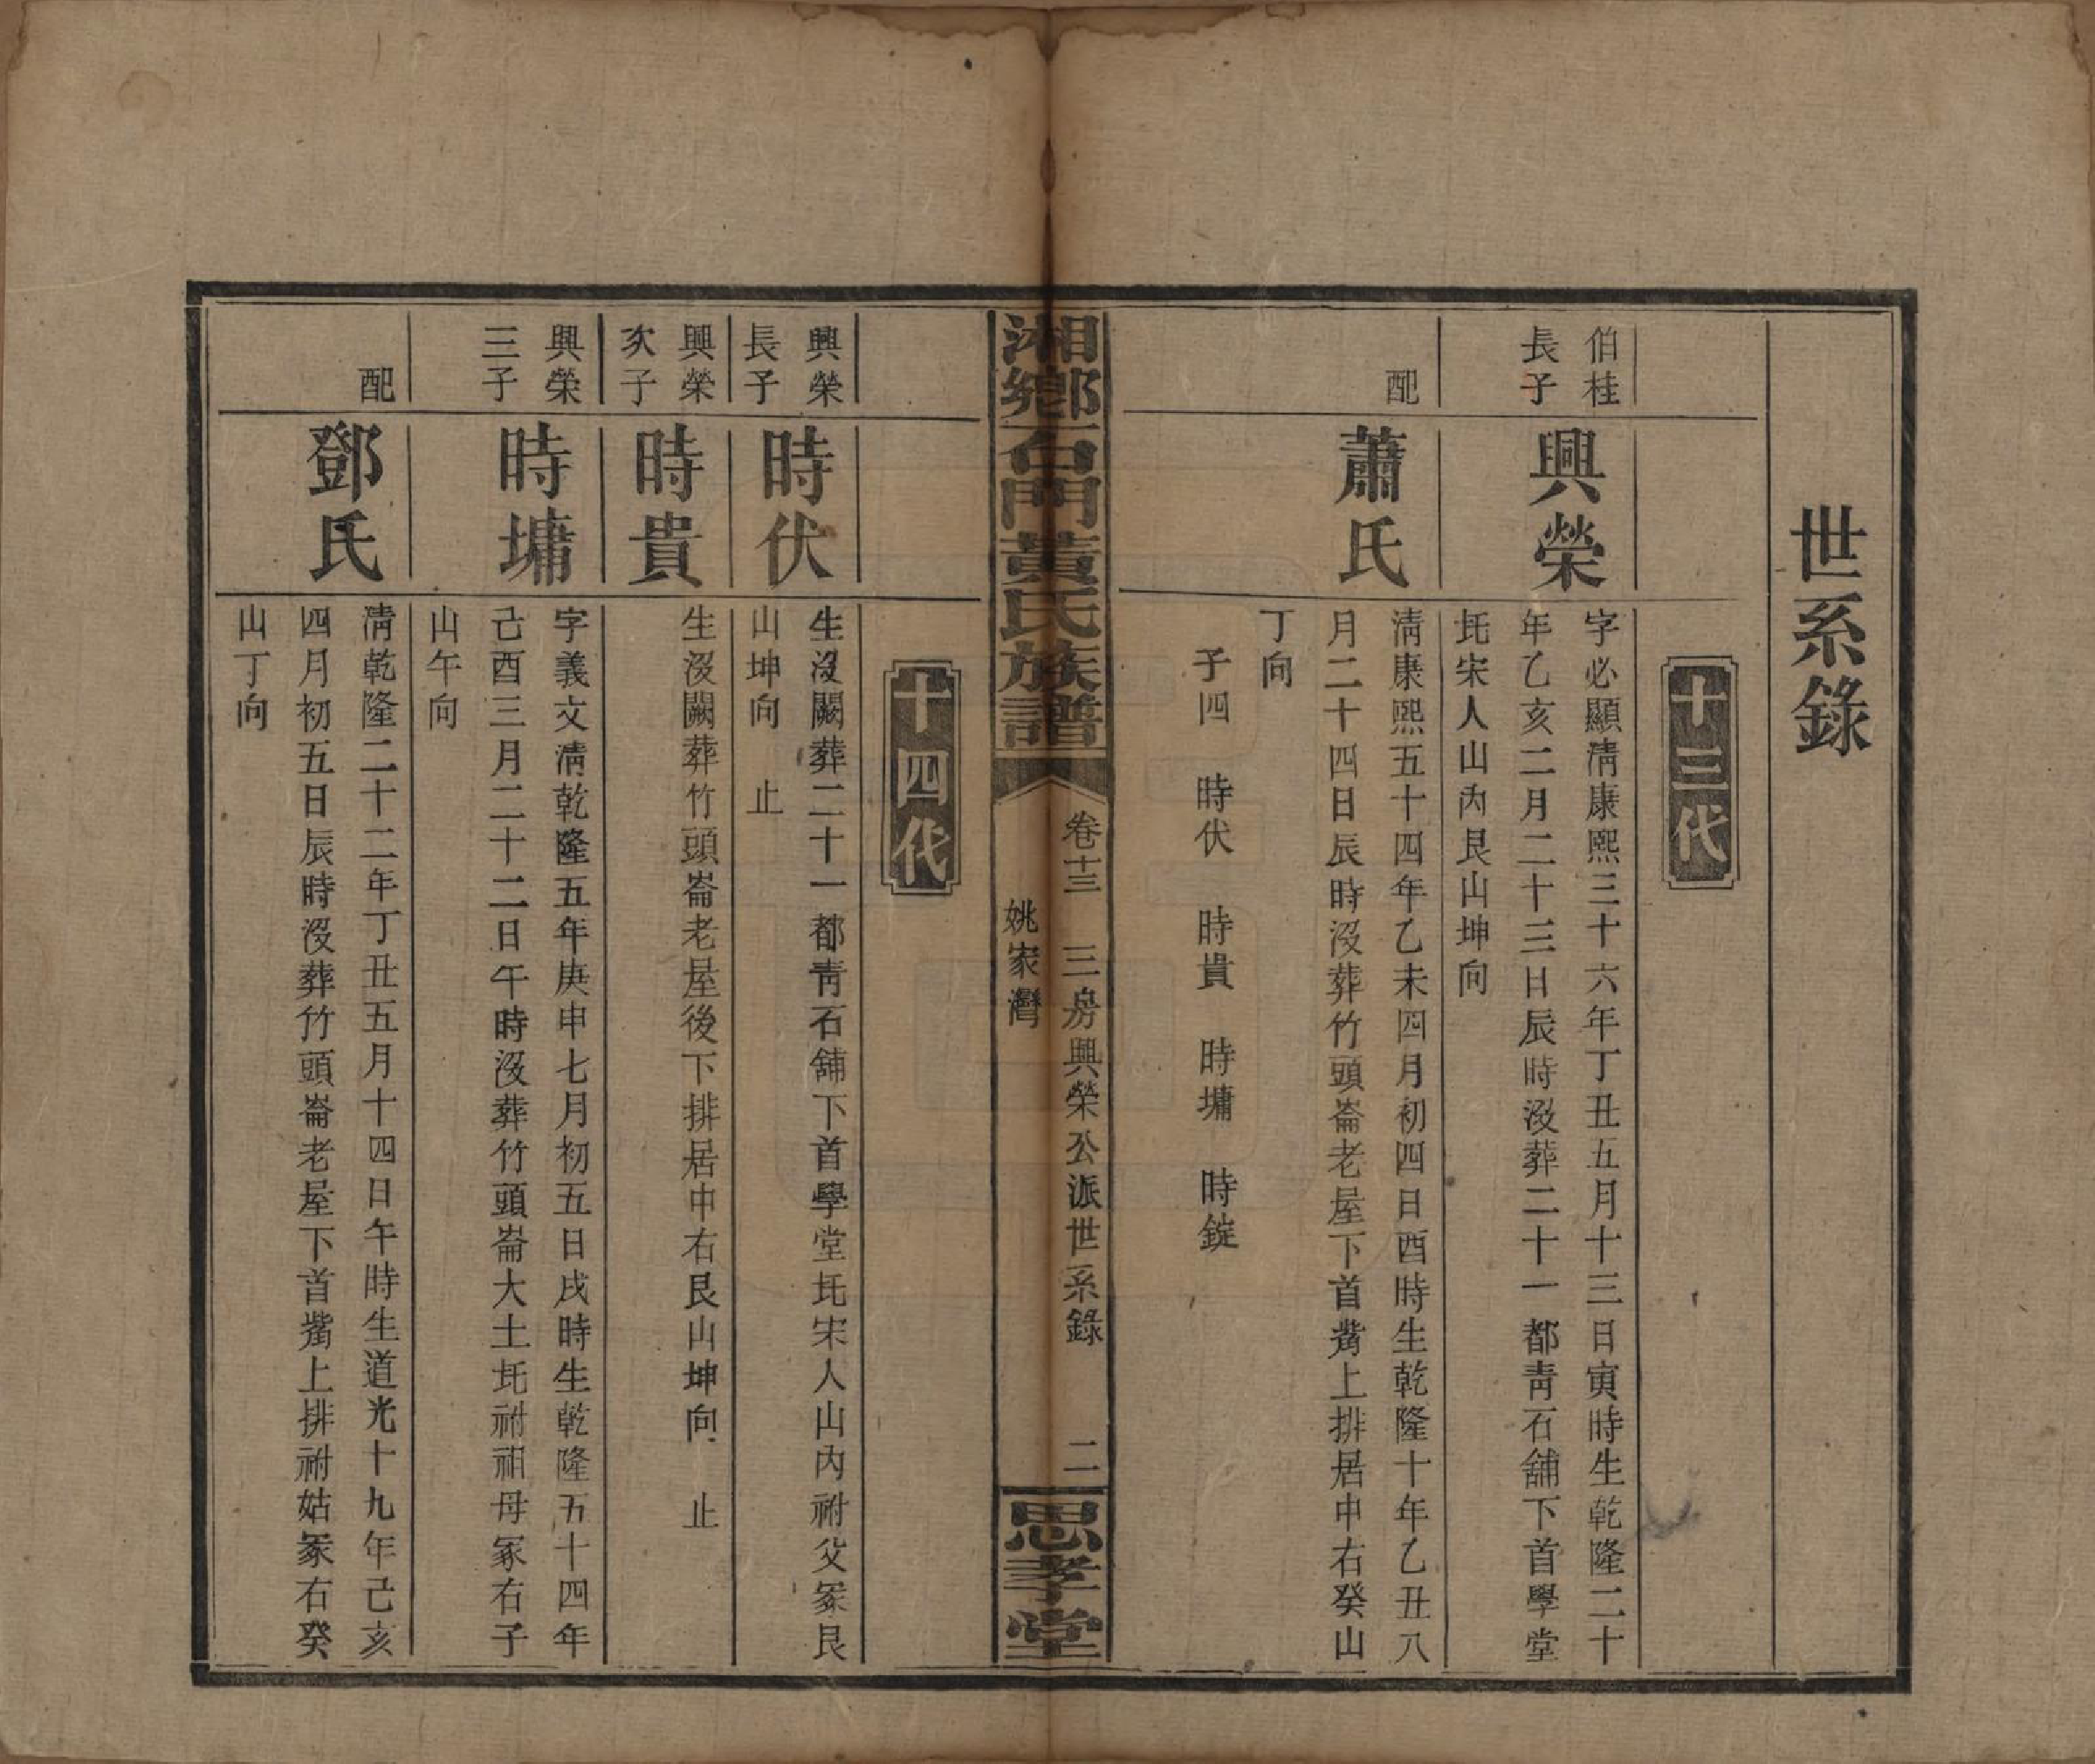 世系錄
十三代
伯桂
長子
興榮
字必顯淸康熙三十六年丁丑五月十三日寅時生乾隆二十
年乙亥二月二十三日辰時沒葬二十一都靑石舖下首學堂
圫宋人山內艮山坤向
配
蕭氏
淸康熙五十四年乙未四月初四日酉時生乾隆十年乙丑八
月二十四日辰時沒葬竹頭崙老屋下首嘴上排居中右癸山
丁向
子四　時伏　時貴　時墉　時錠
湘鄉石門黃氏族譜
卷十三　三房興榮公派世系錄　二
姚家灣
思孝堂
十四代
興榮
長子
時伏
生沒闕葬二十一都靑石舖下首學堂圫宋人山內祔父冢艮
山坤向　止
興榮
次子
時貴
生沒闕葬竹頭崙老屋後下排居中右艮山坤向　止
興榮
三子
時墉
字義文淸乾隆五年庚申七月初五日戌時生乾隆五十四年
己酉三月二十二日午時沒葬竹頭崙大土圫祔祖母冢右子
山午向
配
鄧氏
淸乾隆二十二年丁丑五月十四日午時生道光十九年己亥
四月初五日辰時沒葬竹頭崙老屋下首嘴上排祔姑冢右癸
山丁向